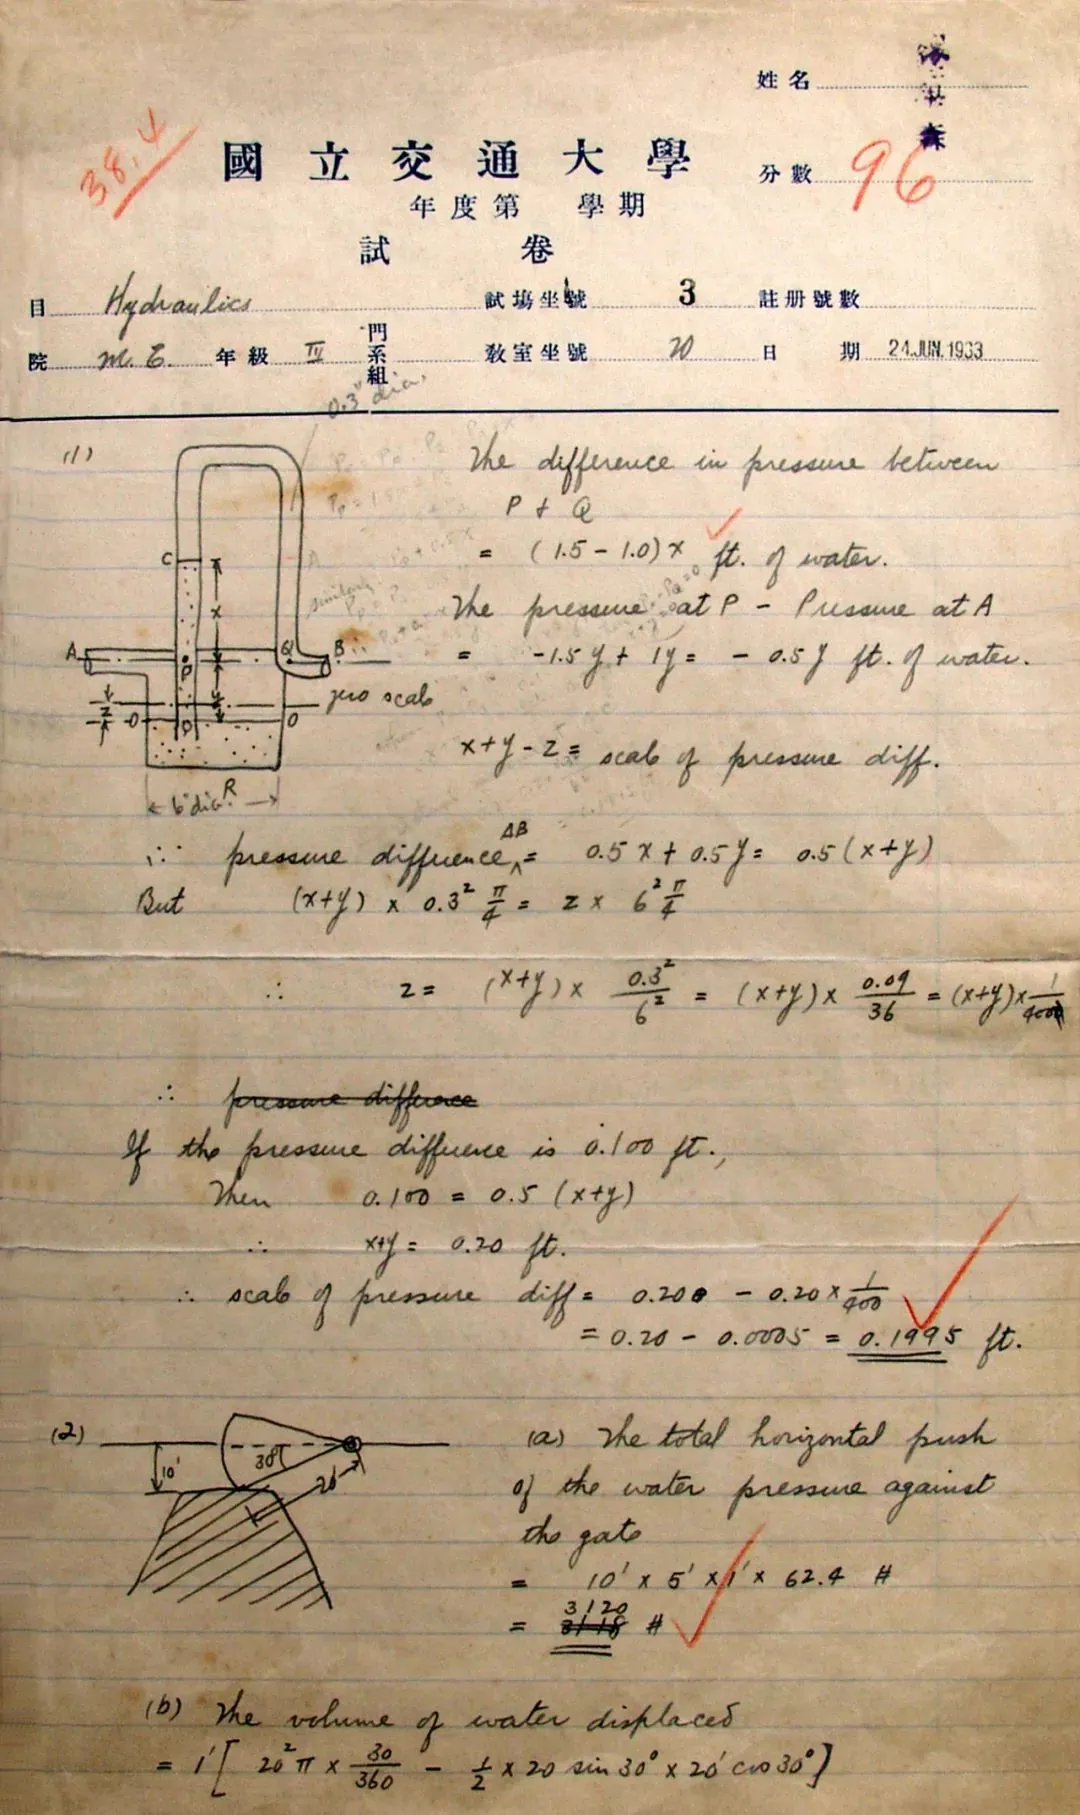 姓名
38.4
國立交通大學
分數 96
年度第 學期
試 卷
目 Hydraulics 試場坐號 3 註册號數
院 M.E. 年級 IV 門系組 教室坐號 20 日期 24.JUN.1933
0.3" dia.
(1)
The difference in pressure between
P + Q
= (1.5 - 1.0)x ft. of water.
The pressure at P - Pressure at A
= -1.5y + 1y = - 0.5y ft. of water.
C
x
A
P
Q
B
zero scale
y
z
O
O
R
6" dia.
x+y-z = scale of pressure diff.
∴ pressure difference AB = 0.5x + 0.5y = 0.5(x+y)
But (x+y) x 0.3² π/4 = z x 6² π/4
∴ z = (x+y) x 0.3²/6² = (x+y) x 0.09/36 = (x+y) x 1/400
∴ pressure difference
If the pressure difference is 0.100 ft.,
Then 0.100 = 0.5 (x+y)
∴ x+y = 0.20 ft.
∴ scale of pressure diff = 0.200 - 0.20 x 1/400
= 0.20 - 0.0005 = 0.1995 ft.
(2)
10'
30°
20'
(a) The total horizontal push
of the water pressure against
the gate
= 10' x 5' x 1' x 62.4 #
= 3118 3120 #
(b) The volume of water displaced
= 1' [ 20² π x 30/360 - 1/2 x 20 sin 30° x 20' cos 30° ]